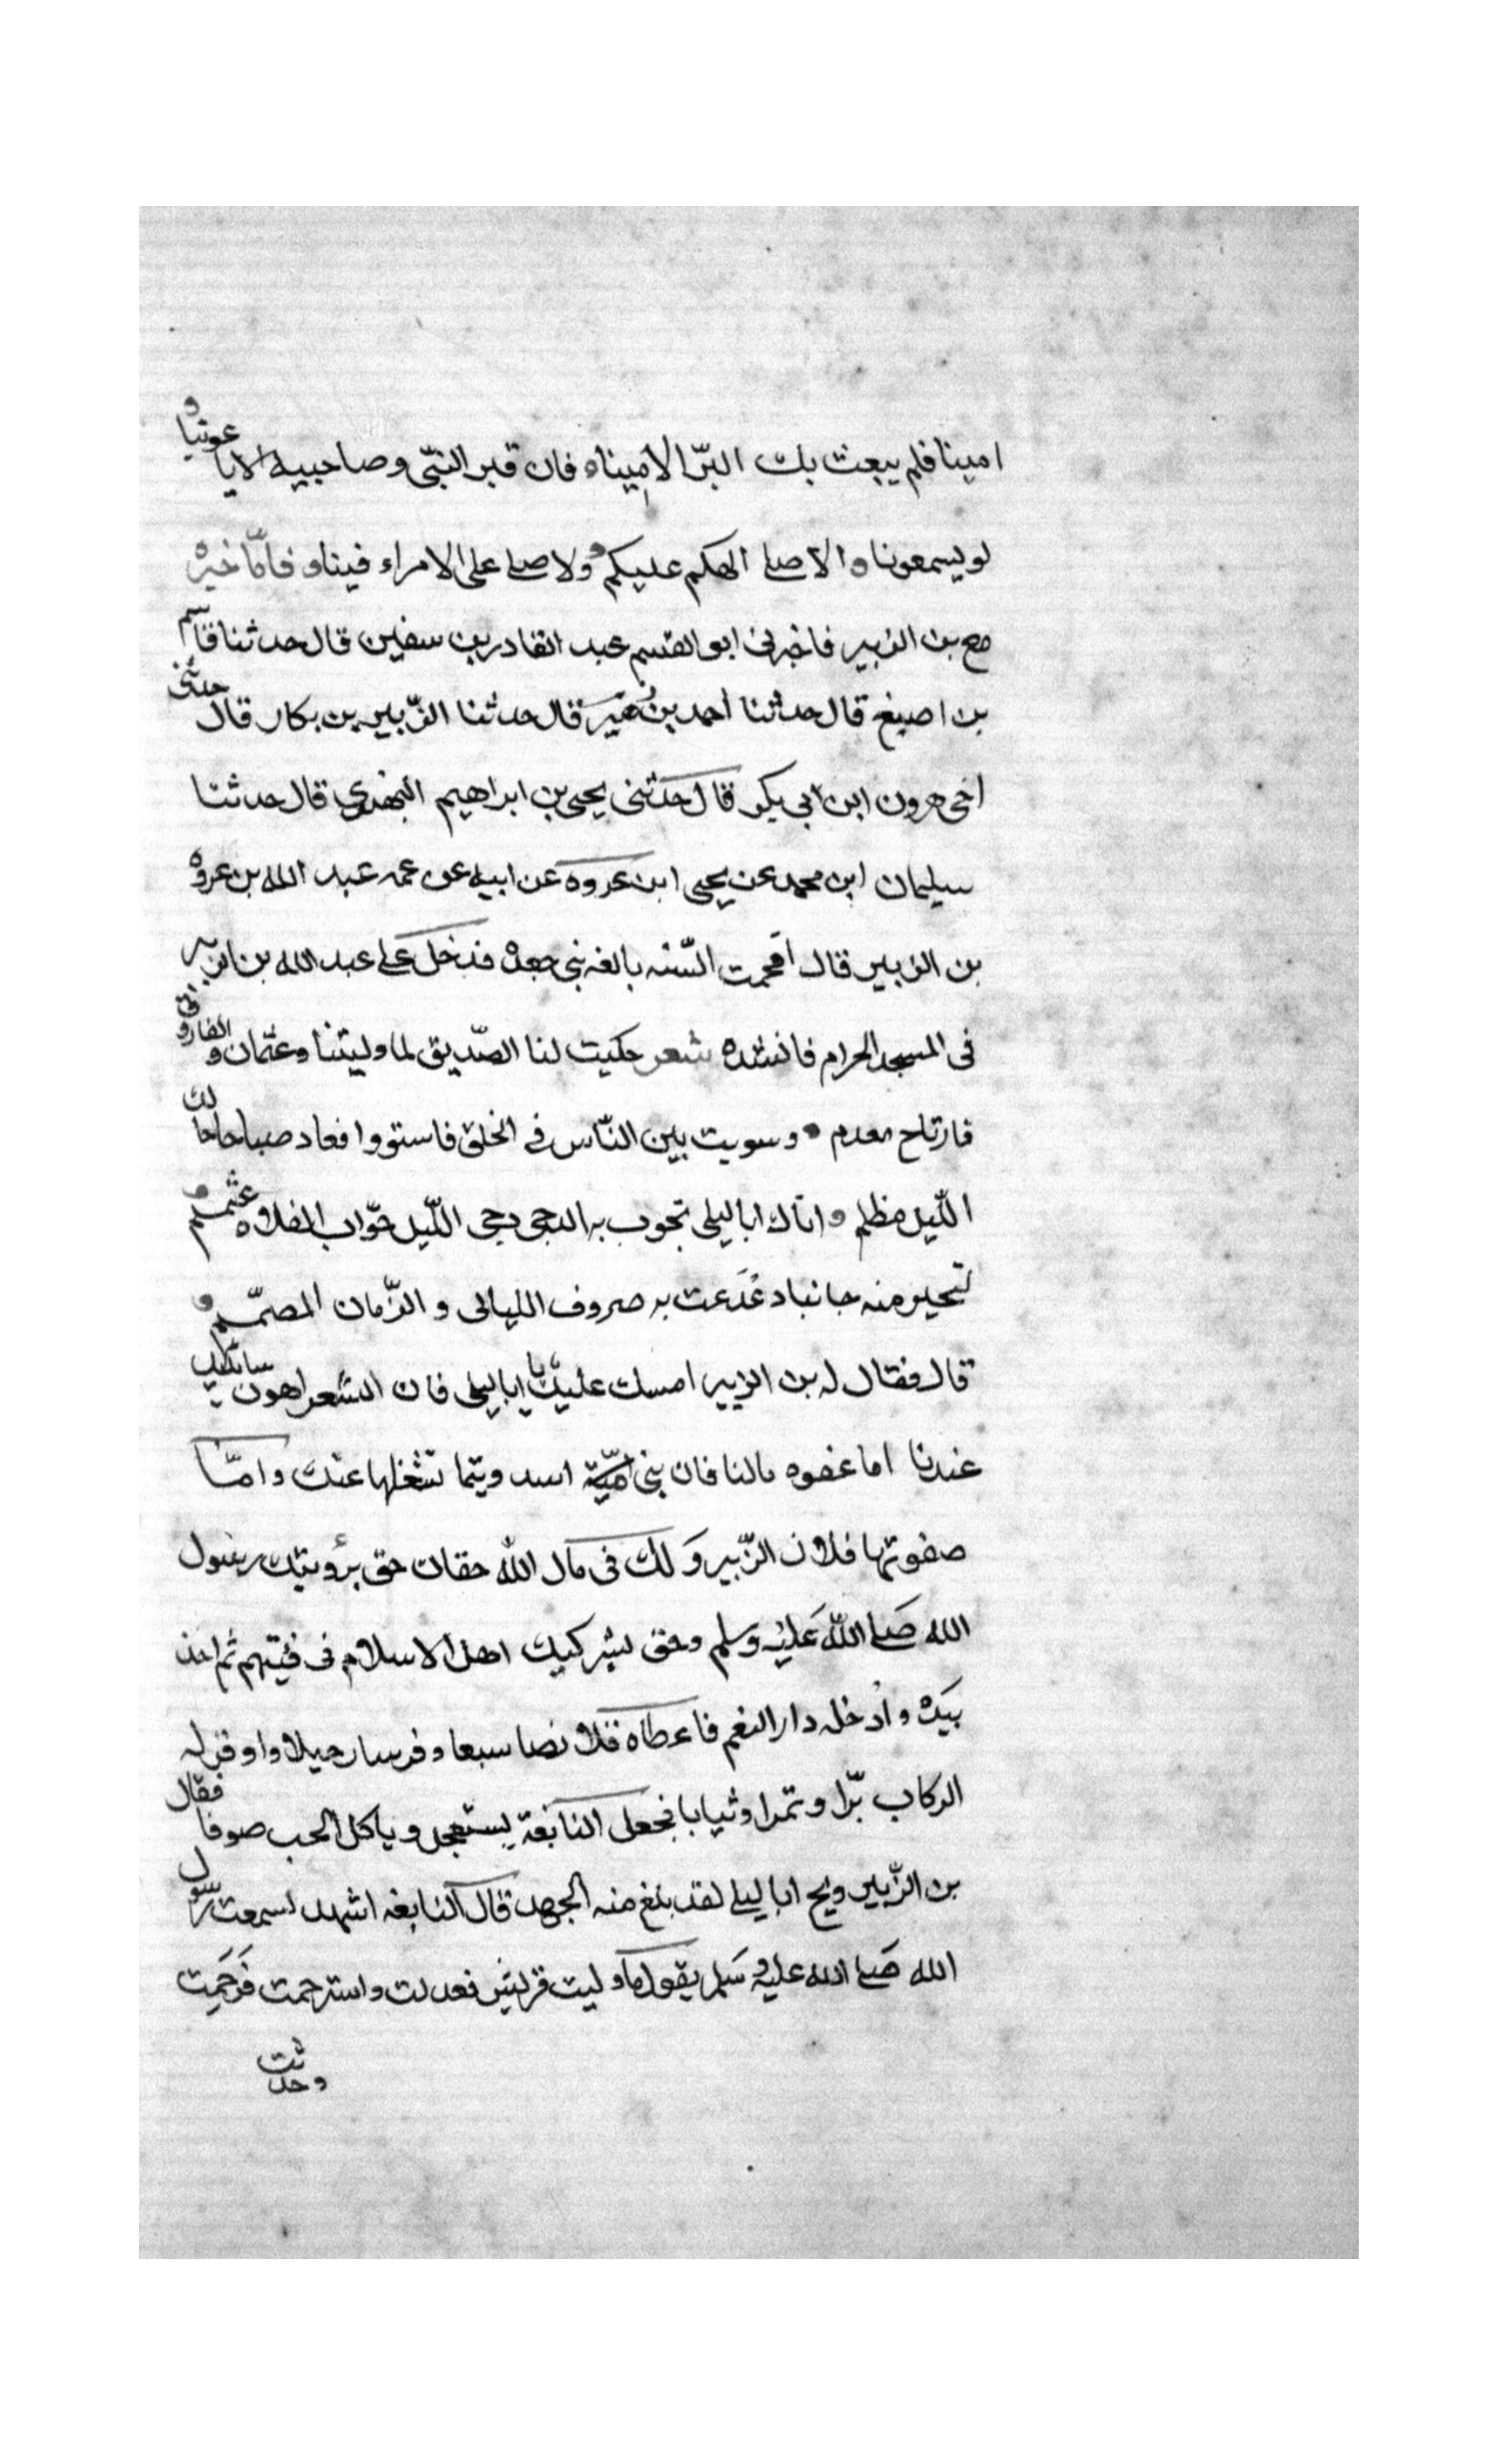 امينا فلم يبعث بك البرّ الامينا ه فان قبر النبّى وصاحبيه الايا عوثنا و
لو يسمعونا ه الا صلى الهكم عليكم و ولا صلى على الامراء فينا و فامّا خبره
مع بن الزبير فاخبرنى ابو القسم عبد القادر بن سفين قال حدثنا قاسم
بن اصبغ قال حدثنا احمد بن زهير قال حدثنا الزّبير بن بكار قال حدثنى
اخى هرون ابن ابى بكر قال حدثنى يحيى بن ابراهيم البهدى قال حدثنا
سليمان ابن محمد عن يحيى ابن عروه عن ابيه عن عمه عبد الله بن عروه
بن الزبير قال اقحمت السّنه بالغه بنى جعده فدخل على عبد الله بن الزبير
فى المسجد الحرام فانشده شعر حكيت لنا الصّديق لما وليتنا وعثمان و الفاروق
فارتاح معدم • وسويت بين النّاس فى الخلق فاستووا فعاد صباحا حالك
اللّيل مظلم و اتاك ابا ليلى تجوب به الدجى دجى اللّيل جوّاب الفلاه عثمثم و
لتجبر منه جانبا دغدعت به صروف الليالى و الزّمان المصمّم و
قال فقال له بن الزبير امسك عليك يا ابا ليلى فان الشعر اهون سائلك
عندنا اما عفوه مالنا فان بنى اميّة اسد وتيما تشغلها عنك وامّا
صفوتها فلان الزّبير وَلك فى مال الله حقان حق برؤيتك رسول
الله صَلى اللّه عَليْه وسلم وحق بشركيك اهل الاسلام فى فيئهم ثم اخذ
بيَده وادخله دار النعم فاعطاه قلانصا سبعا وفرسا رحيلا واوقر له
الركاب برّا وتمرا وثيابا فجعل النابغة يستعجل وياكل الحب صوفا فقال
بن الزّبير ويح ابا ليلى لقد بلغ منه الجهد قال النابغه اشهد لسمعت رسول
الله صَلى الله عليه وسَلم يقول ما وليت قريش فعدلت واسترحمت فرَحَمِت
وحدثت